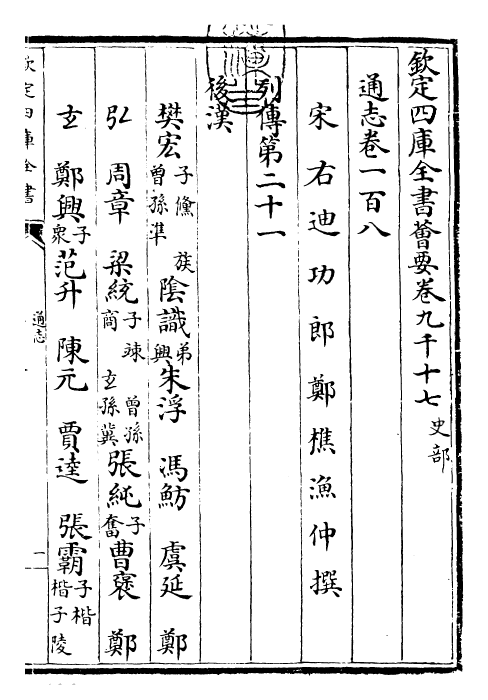 欽定四庫全書薈要卷九千十七 史部
通志卷一百八
宋右迪功郎鄭樵漁仲撰
列傳第二十一
後漢
樊宏 子儵 族曾孫準 陰識 弟興 朱浮 馮魴 虞延 鄭
弘 周章 梁統 子竦 曾孫商 玄孫冀 張純 子奮 曹褒 鄭
玄 鄭興 子衆 范升 陳元 賈逵 張霸 子楷 楷子陵
欽定四庫全書
通志
一